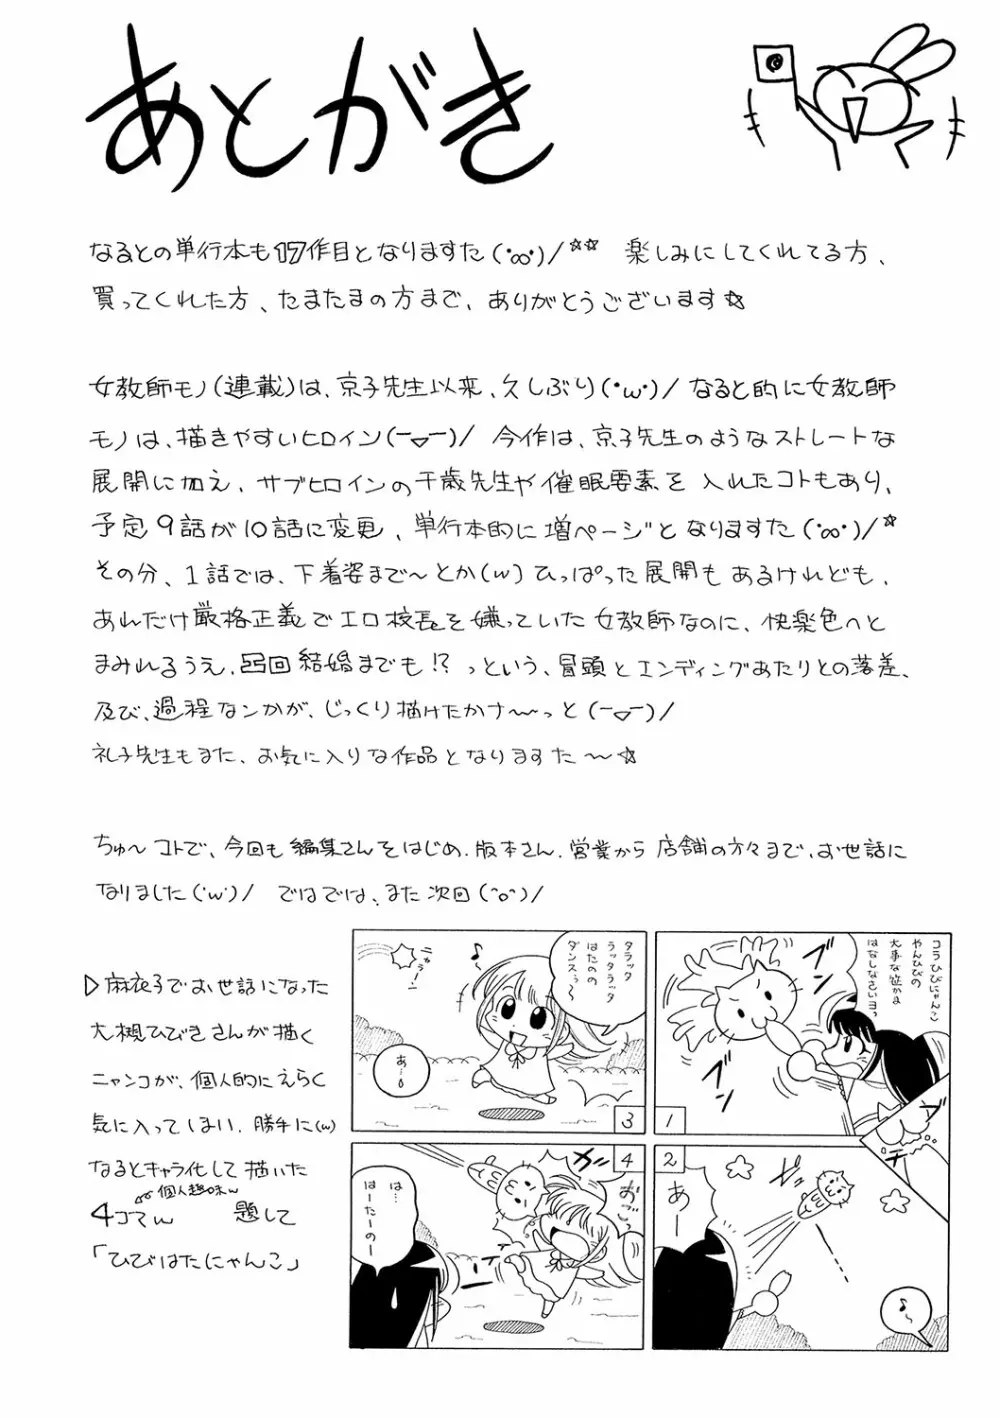 あとがき
なるとの単行本も17作目となりますた(・ω・)/☆☆ 楽しみにしてくれてる方、
買ってくれた方、たまたまの方まで、ありがとうございます☆
女教師モノ(連載)は、京子先生以来、久しぶり(・ω・)/ なると的に女教師
モノは、描きやすいヒロイン(ー▽ー)/ 今作は、京子先生のようなストレートな
展開に加え、サブヒロインの千歳先生や催眠要素を入れたコトもあり、
予定9話が10話に変更、単行本的に増ページとなりますた(・ω・)/☆
その分、1話では、下着姿まで〜とか(w) ひっぱった展開もあるけれども、
あれだけ厳格正義でエロ校長を嫌っていた女教師なのに、快楽色へと
まみれるうえ、回結婚までも!? っという、冒頭とエンディングあたりとの落差、
及び、過程なンかが、じっくり描けたかナ〜〜っと(ー▽ー)/
礼子先生もまた、お気に入りな作品となりますた〜☆
ちゅ〜コトで、今回も編集さんをはじめ、版本さん、営業から店舗の方々まで、お世話に
なりました(・ω・)/ ではでは、また次回(^o^)/
▷麻衣子でお世話になった
大槻ひびきさんが描く
ニャンコが、個人的にえらく
気に入ってしまい、勝手に(w)
なるとキャラ化して描いた
個人趣味w
4コマw 題して
「ひびはたにゃんこ」
コラひびにゃんこ
やんひびの
大事な泣かよ
はなしなさいヨっ
ブン
ブン
1
2
あー
♪
タラッタ
ラッタラッタ
はたのの
ダンスぅ〜
♪
ニャラー!
あ…
3
4
ガッ
おごっ
は…
はーたーのー